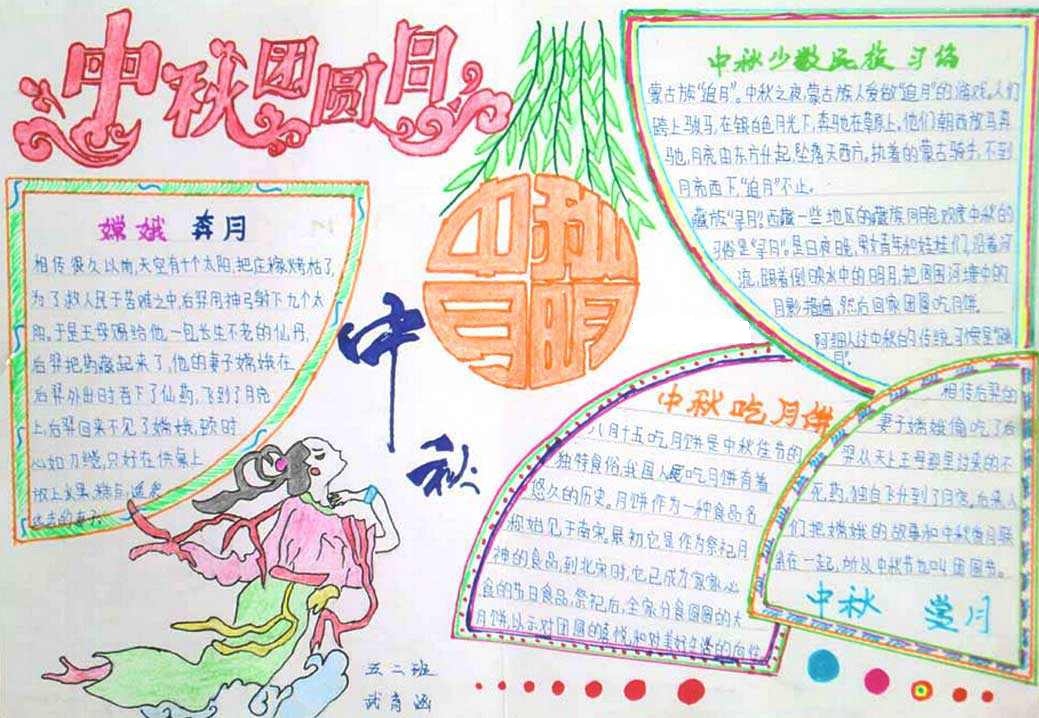 中秋团圆月
嫦娥 奔月
相传很久以前,天空有十个太阳,把庄稼烤枯了,
为了救人民于苦难之中,后羿用神弓射下九个太
阳。于是王母赐给他一包长生不老的仙丹,
后羿把药藏起来了,他的妻子嫦娥在
后羿外出时吞下了仙药,飞到了月亮
上,后羿回来不见了嫦娥,顿时
心如刀绞,只好在供桌上
放上水果、糕点,遥寄
远去的妻子。
中秋
明月
中
秋
中秋少数民族习俗
蒙古族"追月"。中秋之夜,蒙古族人爱做"追月"的游戏。人们
跨上骏马,在银白色月光下,奔驰在草原上。他们朝西放马奔
驰,月亮由东方升起,坠落天西方。执着的蒙古骑手,不到
月亮西下,"追月"不止。
藏族"寻月"。西藏一些地区的藏族同胞欢度中秋的
习俗是"寻月"。是日夜晚,男女青年和娃娃们,沿着河
流,跟着倒映水中的明月,把周围河塘中的
月影捞遍,然后回家团圆吃月饼。
阿细人过中秋的传统习惯是"跳
月"。
中秋吃月饼
八月十五吃月饼是中秋佳节的
独特食俗,我国人民吃月饼有着
悠久的历史。月饼作为一种食品名
称始见于南宋。最初它是作为祭祀月
神的食品,到北宋时,它已成为家家必
食的节日食品,祭祀后,全家分食圆圆的大
月饼,以示对团圆的喜悦,和对美好生活的向往
相传后羿的
妻子嫦娥偷吃了后
羿从天上王母那里讨来的不
死药,独自飞升到了月宫。后来人
们把嫦娥的故事和中秋赏月联
系在一起,所以中秋节也叫团圆节。
中秋 赏月
五二班
武育涵